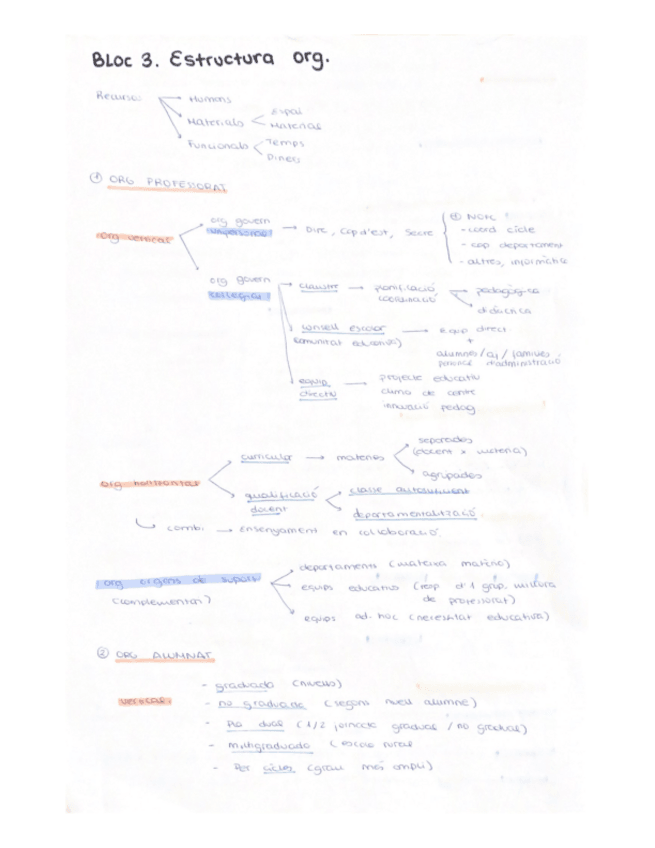 Bloc 3. Estructura org.
Recursos → Humans
Materials < Espai
Materials
Funcionals < Temps
Diners
① ORG PROFESSORAT
org vertical
org govern
unipersonal → Dire, Cap d'est, Secre
- coord cicle
- cap departament
- altres, informàtic
org govern
col·legiat
claustre → planificació → pedagògica
coordinació
didàctica
consell escolar → Equip direct.
comunitat educativa)
+
alumnes / / famílies
d'administració
equip → projecte educatiu
directiu
clima de centre
innovació pedag
org horitzontal
curricular → matèries
separades
(docent x matèria)
agrupades
qualificació
docent
classe
departamentalització
combi. → Ensenyament en col·laboració.
org òrgans de suport
(complementari)
departaments (mateixa matèria)
equips educatius (resp d'1 grup, mixtura
de professorat)
equips ad. hoc (necessitat educativa)
② ORG ALUMNAT
vertical
- graduada (nivells)
- no graduada (segons nivell alumne)
- Pla dual (1/2 gradual / no gradual)
- multigraduada (escola rural
- Per cicles (grau més ampli)